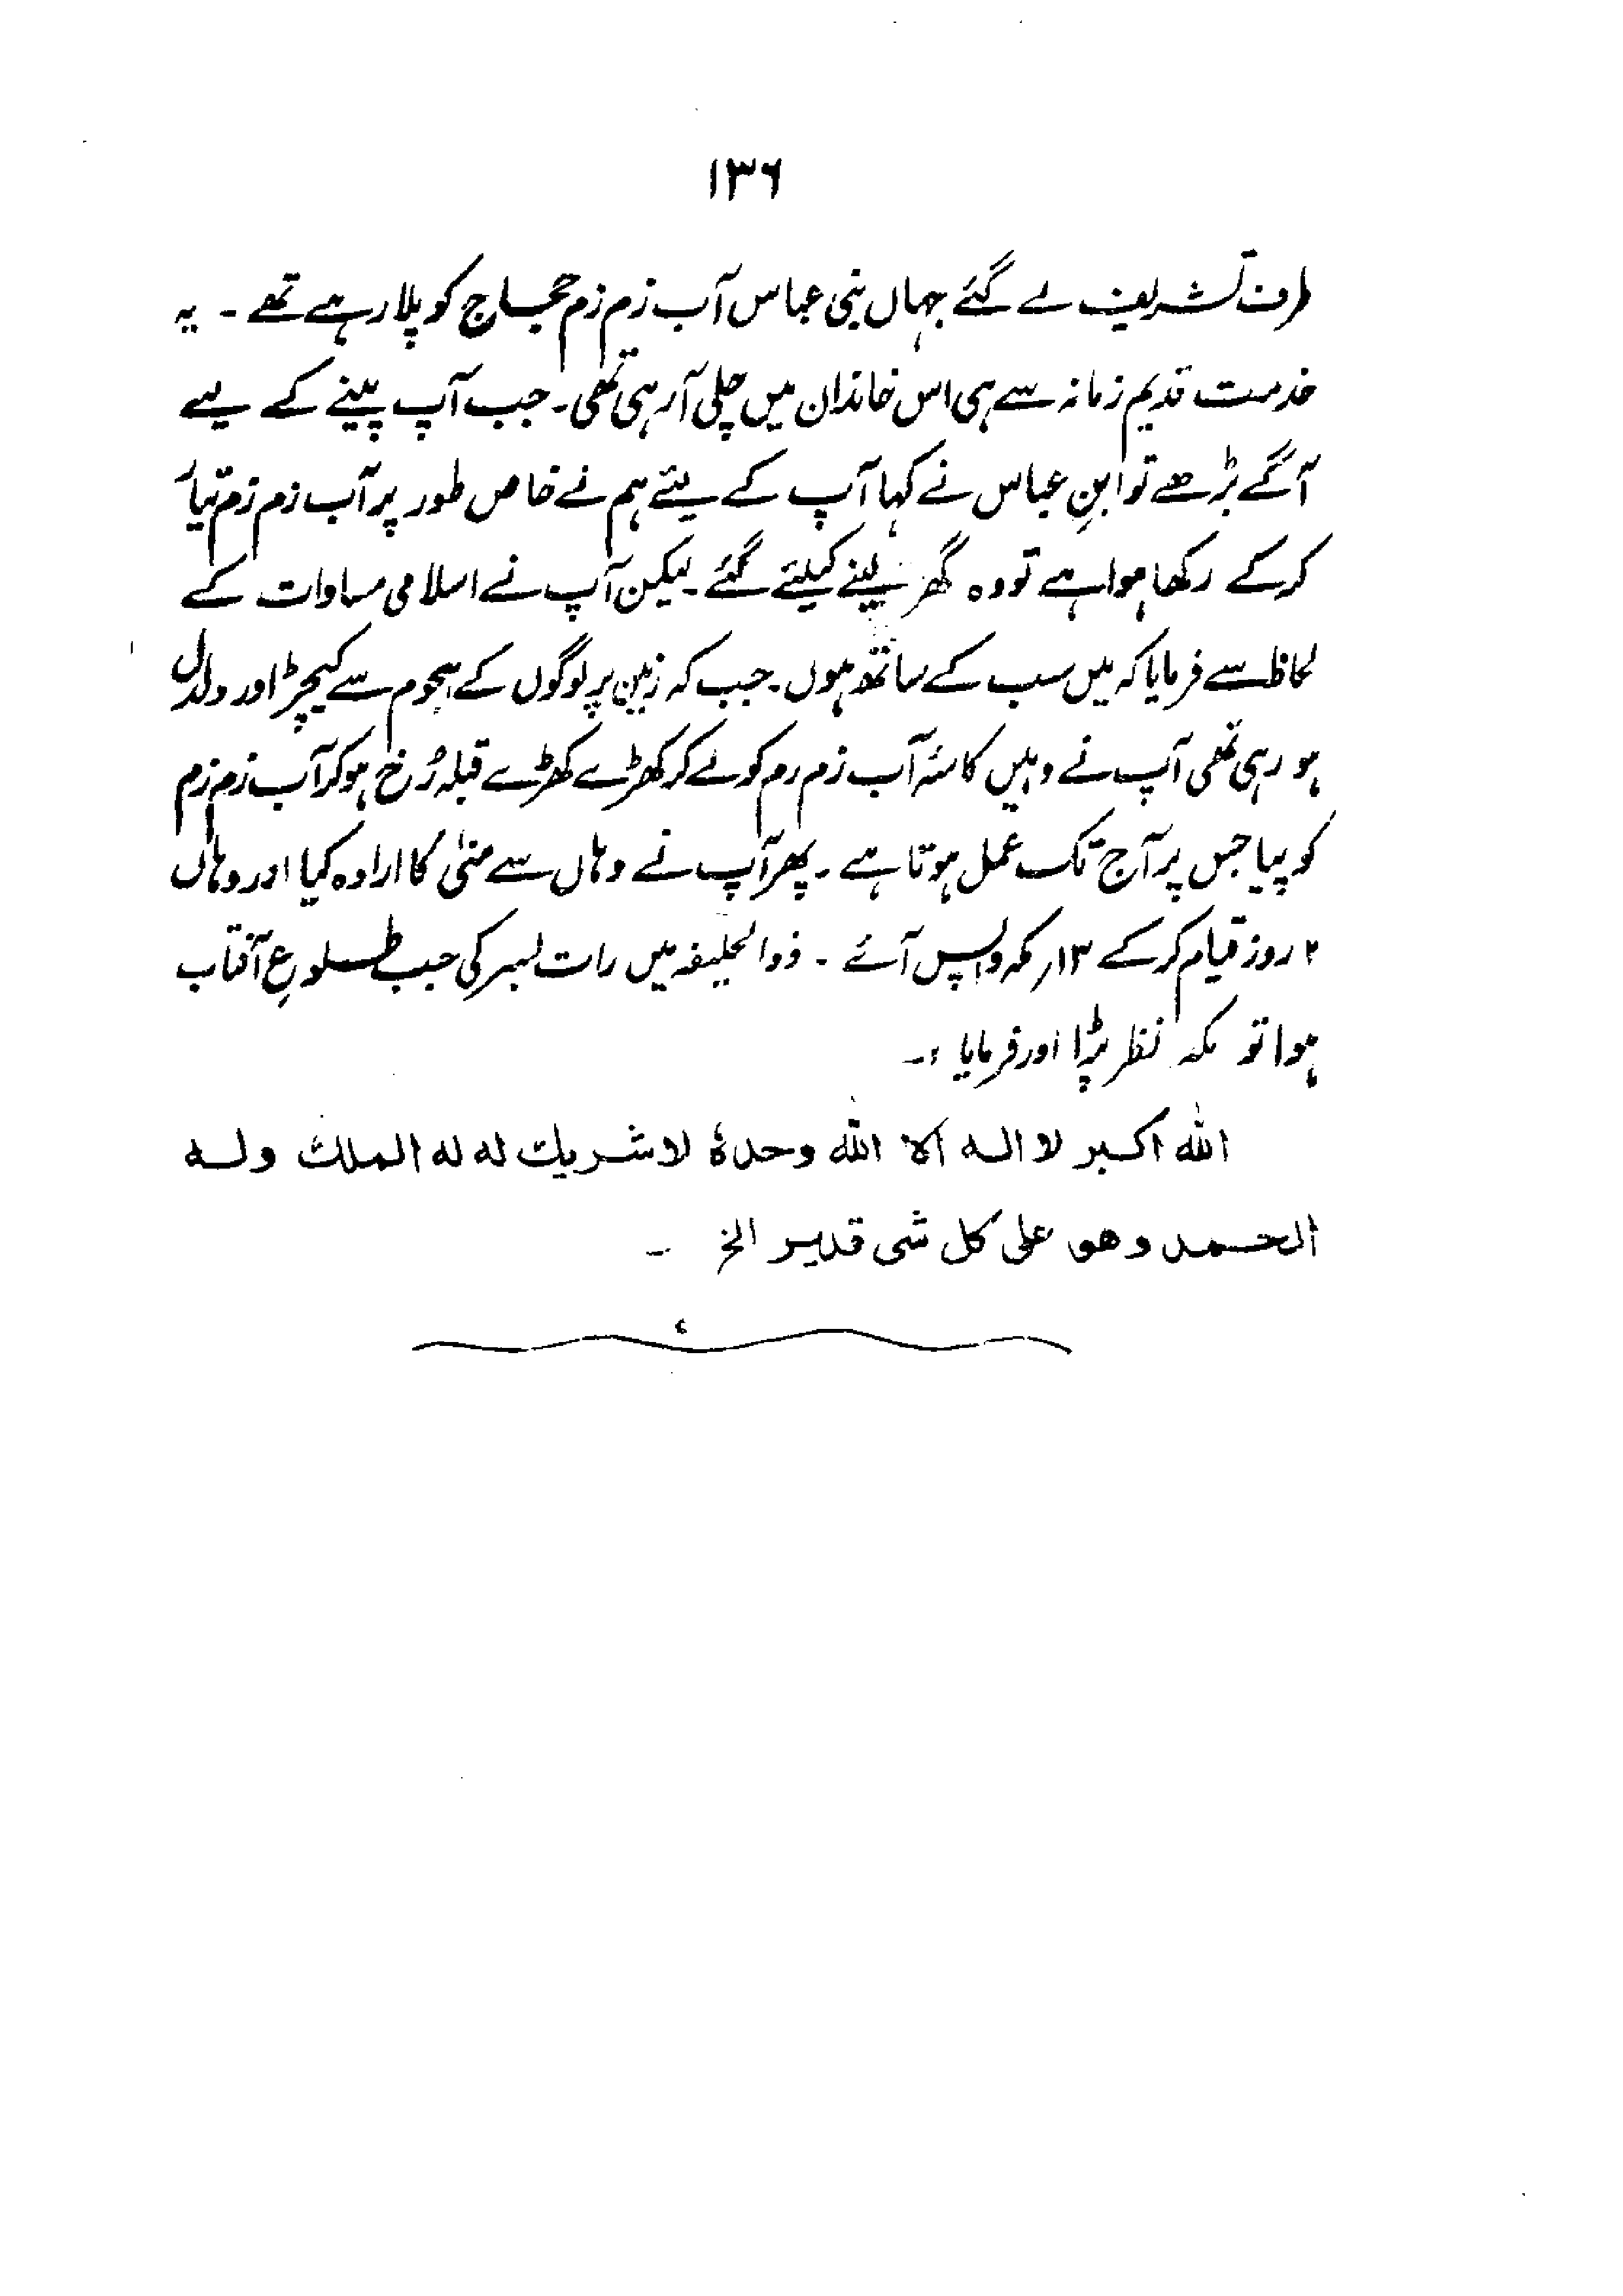 ۱۳۶
طرف تشریف لے گئے جہاں بنی عباس آب زم زم حجاج کو پلا رہے تھے ۔ یہ
خدمت قدیم زمانہ سے ہی اس خاندان میں چلی آرہی تھی۔ جب آپ پینے کے لیے
آگے بڑھے تو ابنِ عباس نے کہا آپ کے لیئے ہم نے خاص طور پر آب زم زم تیار
کرکے رکھا ہوا ہے تو وہ گھر لینے کیلئے گئے ۔ لیکن آپ نے اسلامی مساوات کے
لحاظ سے فرمایا کہ میں سب کے ساتھ ہوں۔ جب کہ زمین پر لوگوں کے ہجوم سے کیچڑ اور دلدل
ہو رہی تھی آپ نے وہیں کاسۂ آب زم رم کو لے کر کھڑے کھڑے قبلہ رُخ ہو کر آب زم زم
کو پیا جس پر آج تک عمل ہوتا ہے ۔ پھر آپ نے وہاں سے منیٰ کا ارادہ کیا اور وہاں
۲ روز قیام کرکے ۱۳؍ مکہ واپس آئے ۔ ذوالحلیفہ میں رات بسر کی جب طلوعِ آفتاب
ہوا تو مکہ نظر پڑا اور فرمایا :۔
الله اکبر لا اله الا الله وحدهٗ لا شریك له له الملك وله
الحمد وهو علی کل شی قدیر الخ ۔